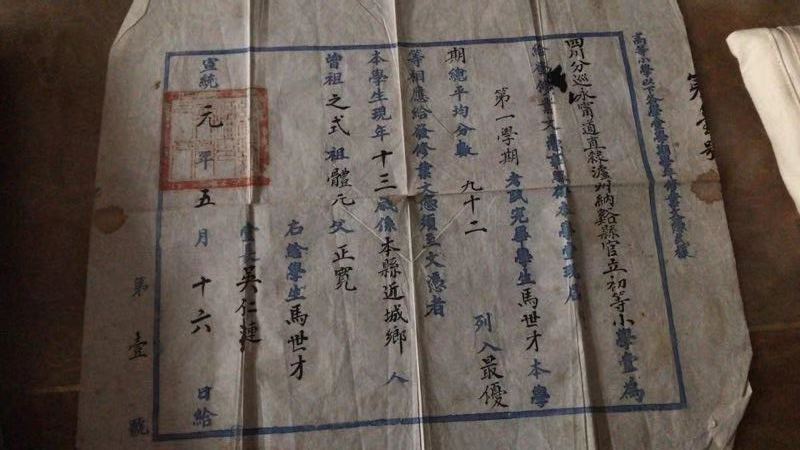 高等小學以下各學堂
四川分巡永甯道直隸瀘州納谿縣官立初等小學堂為
給發修業文憑事照得本學堂現屆
第一學期考試完畢學生馬世才本學
期總平均分數 九十二 列入最優
等相應給發修業文憑須至文憑者
本學生現年十三歲係本縣近城鄉人
曾祖之式祖體元父正寬
右給學生馬世才
堂長吳仁漣
宣統元年五月十六日給
第壹號